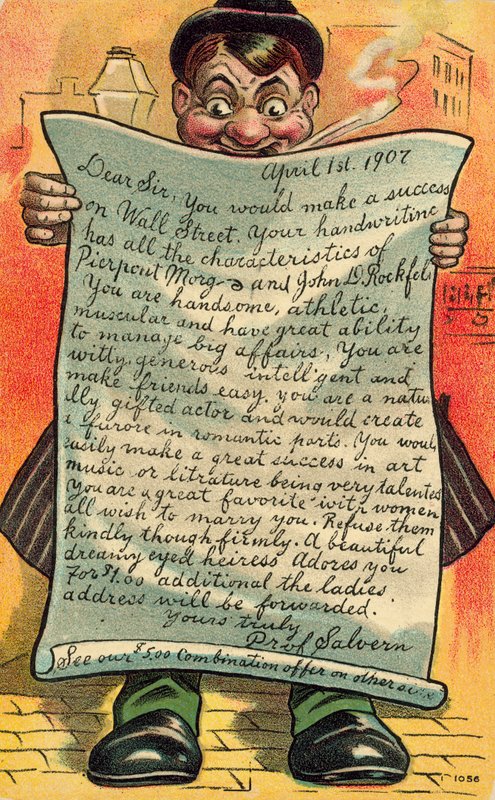 April 1st. 1907
Dear Sir, You would make a success
on Wall Street. Your handwriting
has all the characteristics of
Pierpont Morg and John D. Rockfel
You are handsome, athletic,
muscular and have great ability
to manage big affairs, You are
witty, generous intelligent and
make friends easy, you are a natu
lly gifted actor and would create
a furore in romantic parts. You would
easily make a great success in art
music or litrature being very talented
You are a great favorite with women
all wish to marry you. Refuse them
kindly though firmly. A beautiful
dreamy eyed heiress Adores you
For $1.00 additional the ladies
address will be forwarded.
Yours truly
Prof Salvern
See our $5.00 Combination offer on other side
1056